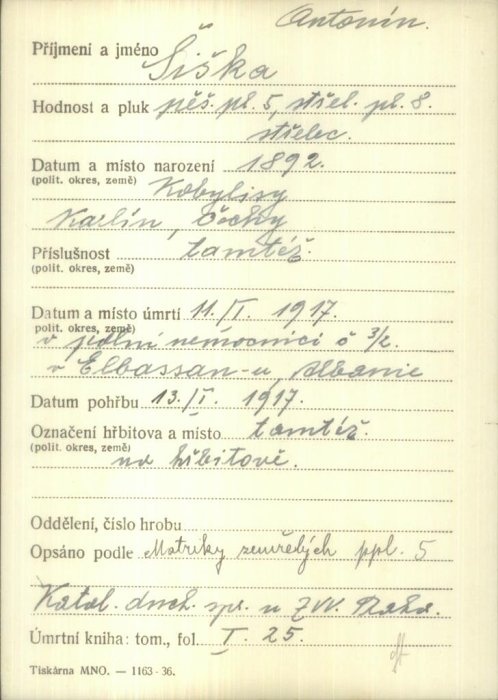 Antonín.
Příjmení a jméno Šiška
Hodnost a pluk pěš. pl. 5, střel. pl. 8.
střelec.
Datum a místo narození 1892.
(polit. okres, země) Kobylisy
Karlín, Čechy
Příslušnost tamtéž.
(polit. okres, země)
Datum a místo úmrtí 11./I. 1917.
polit. okres, země)
v polní nemocnici č 3/2.
v Elbassan-u, Albanie
Datum pohřbu 13./I. 1917.
Označení hřbitova a místo tamtéž.
(polit. okres, země)
na hřbitově.
Oddělení, číslo hrobu
Opsáno podle Matriky zemřelých ppl. 5
Katol. duch. spr. u ZVV. Praha.
Úmrtní kniha: tom., fol. I. 25.
Tiskárna MNO. — 1163-36.